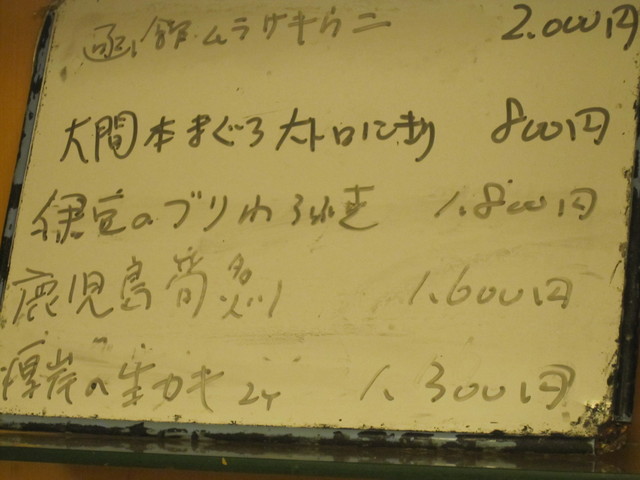 函館ムラサキウニ 2.000円
大間本まぐろ大トロにぎり 800円
伊豆のブリわら焼き 1.800円
鹿児島筍炙り 1.600円
厚岸の生カキ 2ケ 1.300円